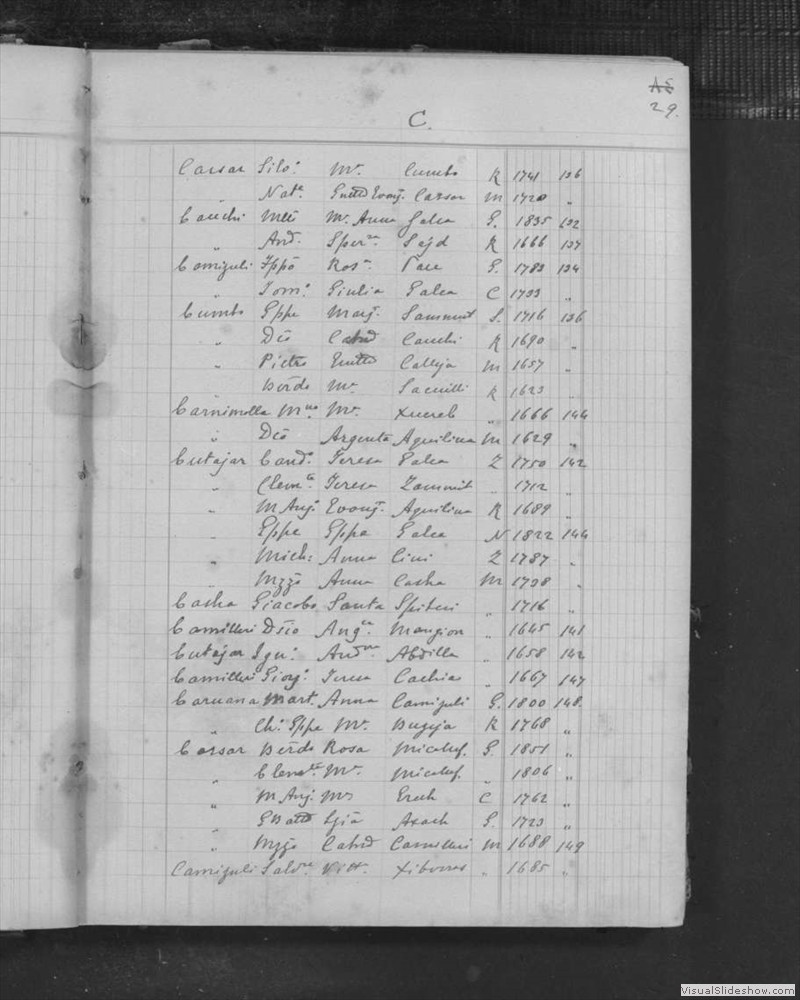 A5
29.
C.
Cassar Silv.º Mª. Cumbo K 1741 136
" Natᵉ Gratta Evang. Cassar M 1720 "
Cauchi Mª. Anna Galea G. 1835 132
" And. Sperᶻᵃ Sajd K 1666 137
Camiguli Ippō Rosª. Pace G. 1783 134
" Tomº. Giulia Galea C 1733 "
Cumbo Gppe Marg. Sammut S. 1716 136
" Dio Catrd Cauchi K 1690 "
" Pietro Calleja M 1657 "
" Berdo Mª. K 1623 "
Mª. Xuereb " 1666 144
" Dio Argenta Aquilina M 1629 "
Cutajar Cand.º Teresa Galea Z 1750 142
" Clemᵗᵉ Teresa Zammit " 1712 "
" M Ang. Evang. Aquilina K 1689 "
" Gppe Gppa Galea N 1822 144
" Mich: Anna Cini Z 1787 "
" Mzzo Anna Casha M 1738 "
Casha Giacobo Santa Spiteri " 1716 "
Camilleri Dsio Angᶜᵃ Mangion " 1645 141
Cutajar Ign: Andʳᵉᵃ Abdilla " 1658 142
Camilleri Giorg. Teresa Cachia " 1667 147
Caruana Mart. Anna Camiguli G. 1800 148
" Ch. Gppe Mª. Bugeja K 1768 "
Cassar Berdo Rosa Micalef. G. 1851 "
" Clemᵗᵉ Mª. Micalef. " 1806 "
" M Ang. Mª C 1762 "
" Gio Batta Axach G. 1723 "
" Mzzo Catrd Camilleri M 1688 149
Camiguli Salvʳᵉ Vittª. Xiberras " 1685 "
VisualSlideshow.com